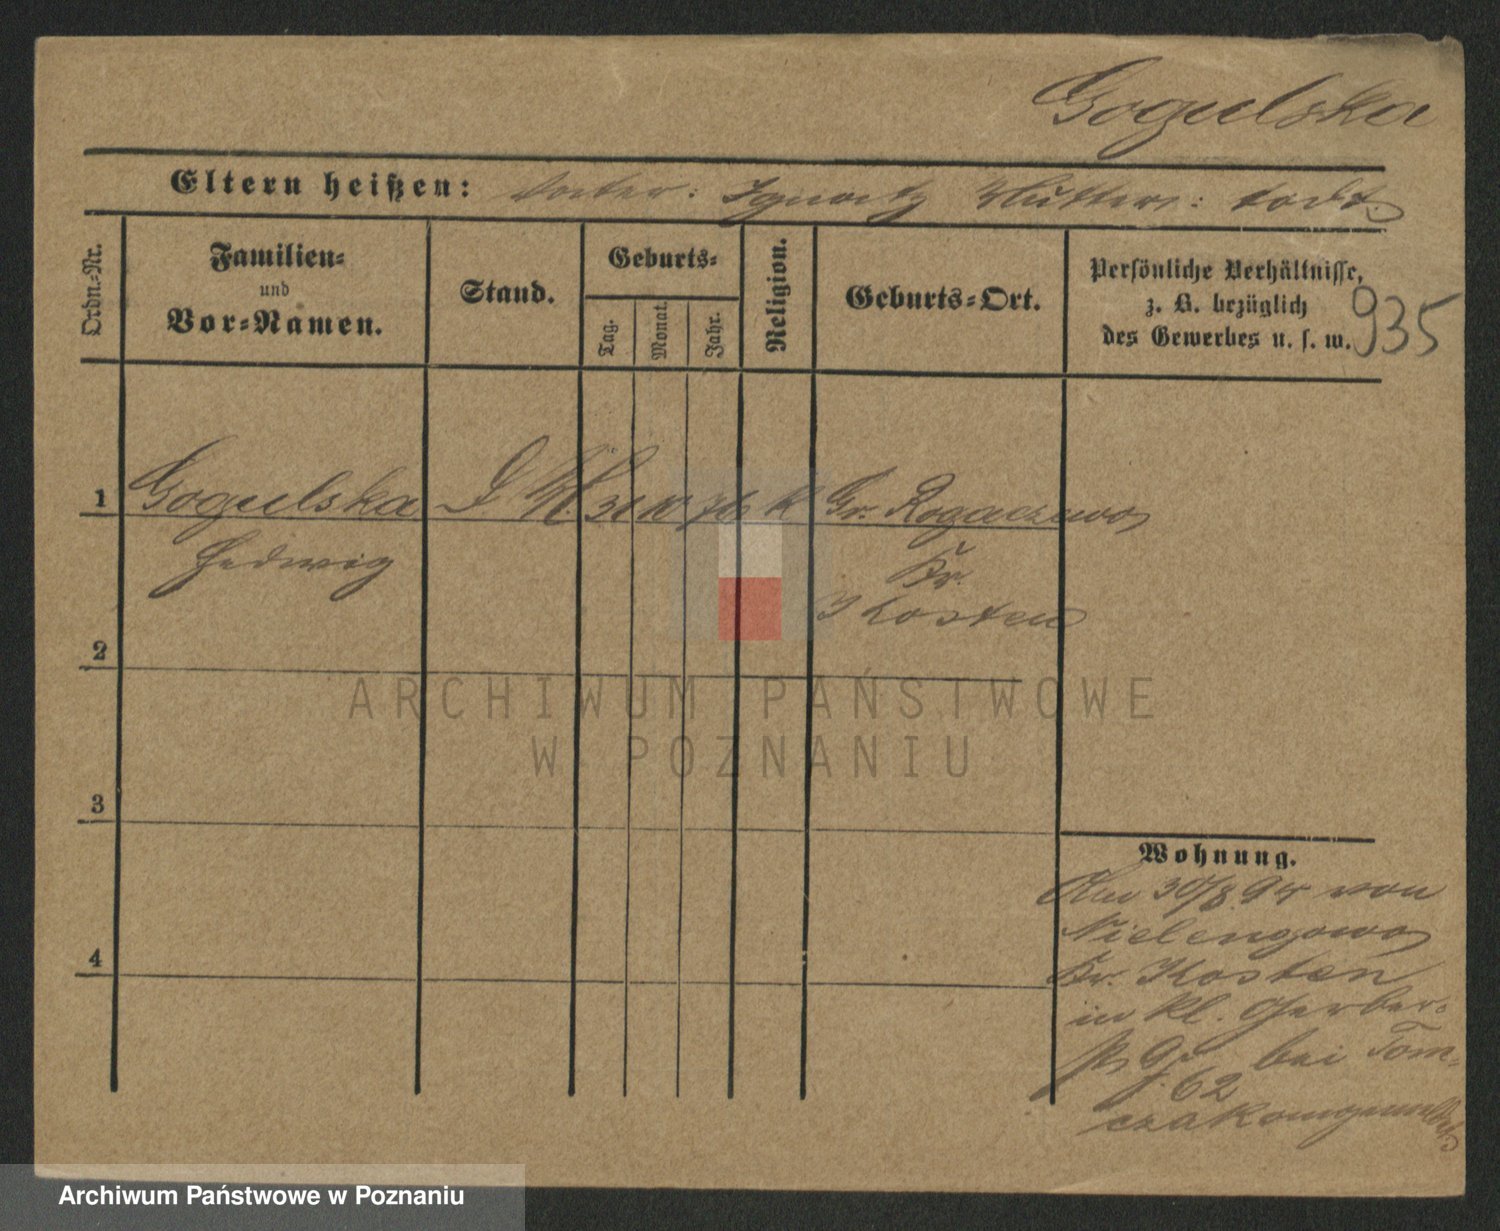 Gogulska
Eltern heißen: Vater: Ignatz Mutter: todt.
Ordn.-Nr.
Familien-
und
Vor-Namen.
Stand.
Geburts-
Tag.
Monat.
Jahr.
Religion.
Geburts-Ort.
Persönliche Verhältnisse,
z. B. bezüglich
des Gewerbes u. s. w.
935
1 Gogulska D. M. 31 10 76 k Gr. Rogaczewo
Hedwig Kr.
Kosten
2
3
4
Wohnung.
Am 30/8. 94 von
Nielengowo
Kr. Kosten
in kl. Gerber-
bei Tom-
62
czak angemeldet
ARCHIWUM PAŃSTWOWE
W POZNANIU
Archiwum Państwowe w Poznaniu